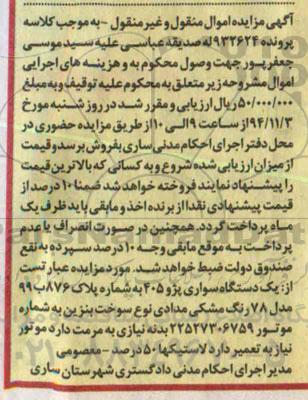 آگهی مزایده اموال منقول و غیر منقول - به موجب کلاسه
پرونده ۹۳۲۶۲۴ له صدیقه عباسی علیه سید موسی
جعفرپور جهت وصول محکوم به و هزینه های اجرایی
اموال مشروحه زیر متعلق به محکوم علیه توقیف و به مبلغ
۵۰/۰۰۰/۰۰۰ ریال ارزیابی و مقرر شد در روز شنبه مورخ
۹۴/۱۱/۳ از ساعت ۹ الی ۱۰ از طریق مزایده حضوری در
محل دفتر اجرای احکام مدنی ساری بفروش برسد و قیمت
از میزان ارزیابی شده شروع و به کسانی که بالاترین قیمت
را پیشنهاد نمایند فروخته خواهد شد ضمنا ۱۰ درصد از
قیمت پیشنهادی نقدا از برنده اخذ و مابقی باید ظرف یک
ماه پرداخت گردد. همچنین در صورت انصراف یا عدم
پرداخت به موقع مابقی وجه ۱۰ درصد سپرده به نفع
صندوق دولت ضبط خواهد شد. مورد مزایده عبارتست
از: یک دستگاه سواری پژو ۴۰۵ به شماره پلاک ۸۷۶ب۹۹
مدل ۷۸ رنگ مشکی مدادی نوع سوخت بنزین به شماره
موتور ۲۲۵۲۷۳۰۶۷۵۹ بدنه نیازی به مرمت دارد موتور
نیاز به تعمیر دارد لاستیکها ۵۰ درصد - معصومی
مدیر اجرای احکام مدنی دادگستری شهرستان ساری